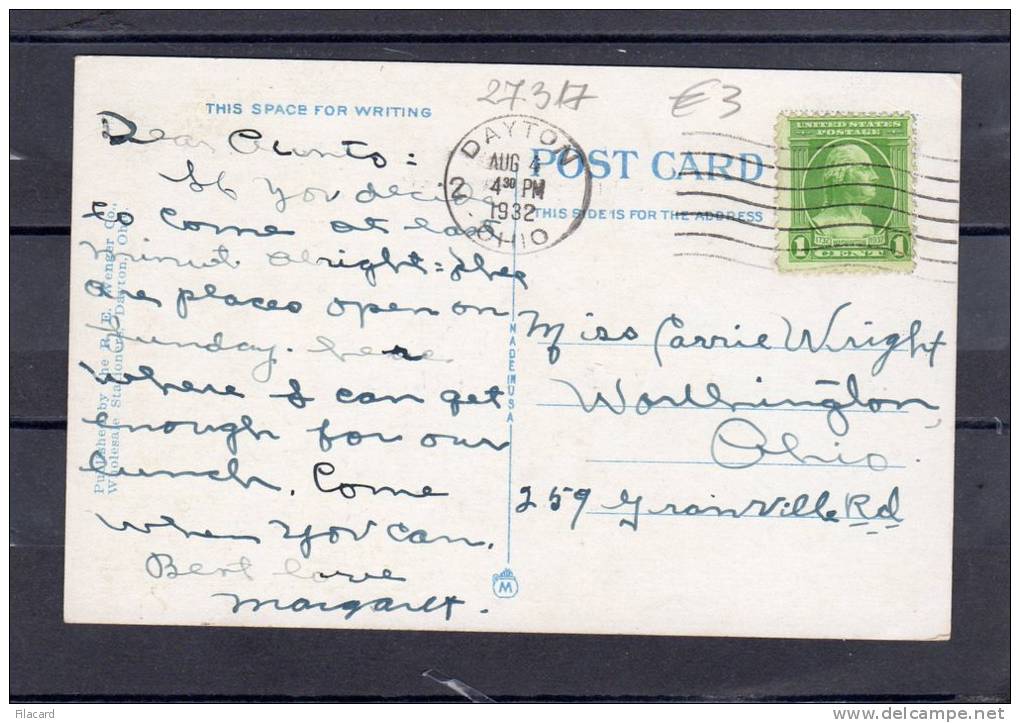 27317 €3
THIS SPACE FOR WRITING
DAYTON
OHIO
2
AUG 4
4 30 PM
1932
POST CARD
THIS SIDE IS FOR THE ADDRESS
UNITED STATES
POSTAGE
1 1732 1932 1
CENT
Dear Aunto:
If you decide
to come at last
minute alright = they
are places open on
Sunday here
where I can get
enough for our
lunch. Come
when you can.
Best love
Margaret.
Published by the R. E. Wenger Co.,
Wholesale Stationers, Dayton, Ohio.
MADE IN USA
M
Miss Carrie Wright
Worthington
Ohio
259 Granville Rd
filacard
www.delcampe.net